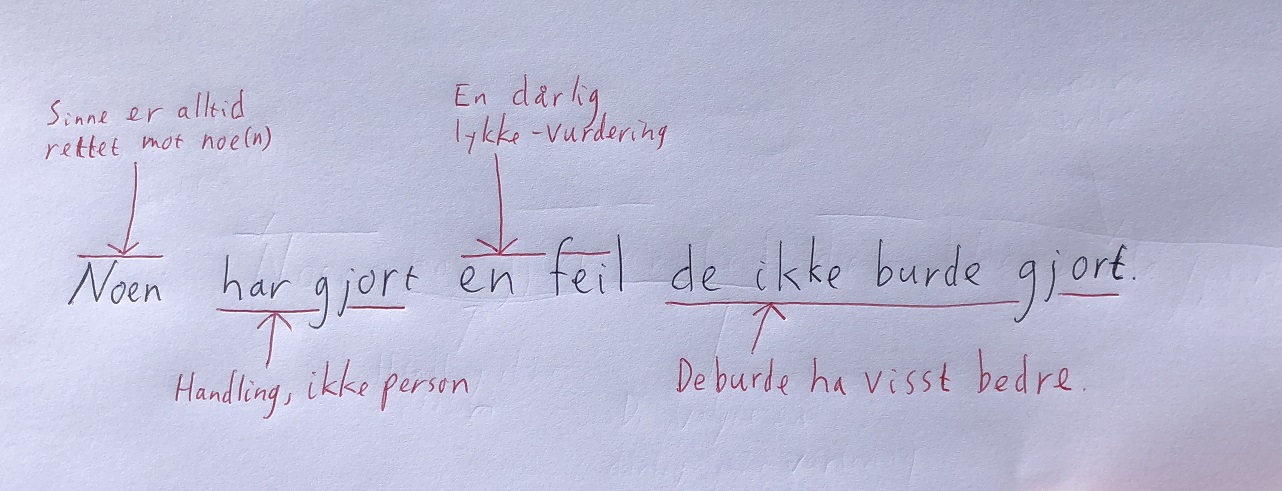 Sinne er alltid
rettet mot noe(n)
En dårlig
lykke-vurdering
Noen har gjort en feil de ikke burde gjort.
Handling, ikke person
De burde ha visst bedre.